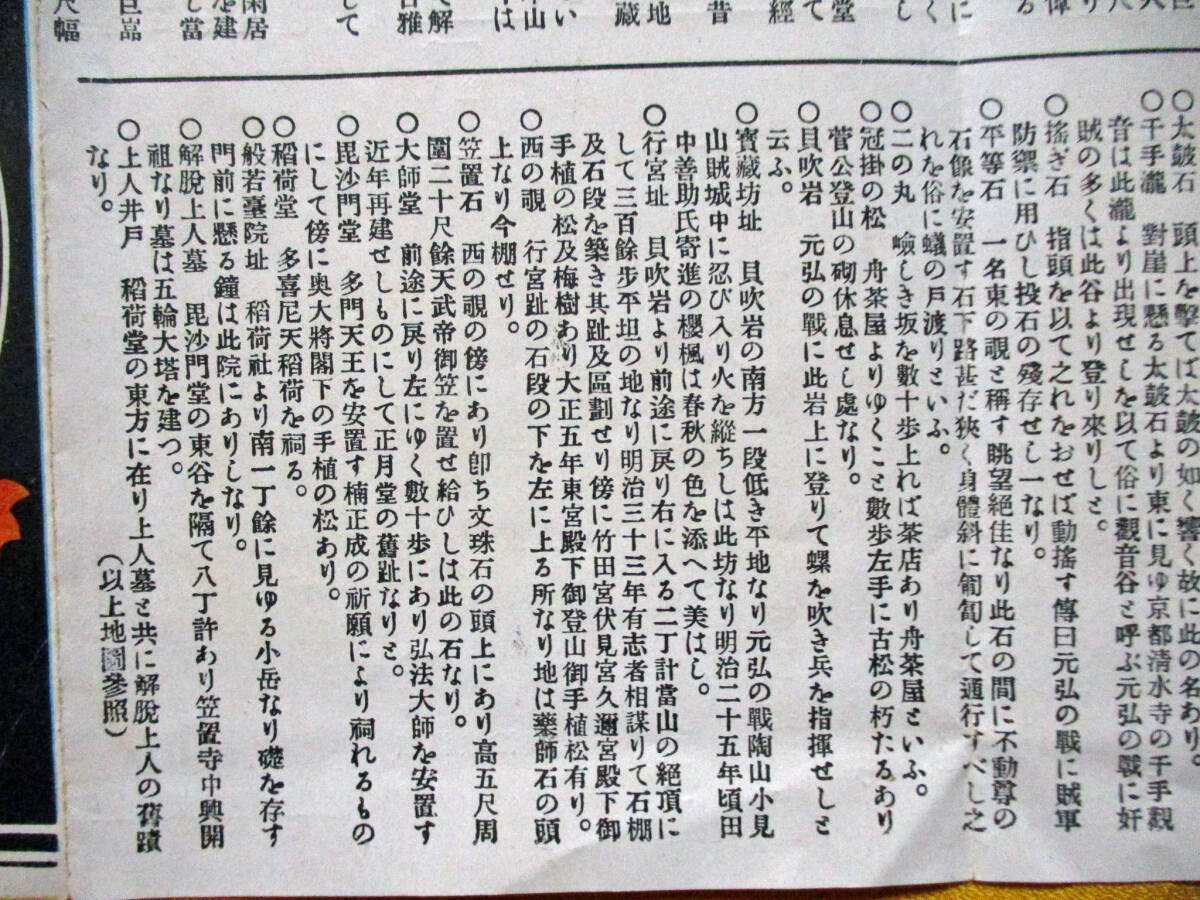 ○太鼓石　頭上を擊てば太鼓の如く響く故に此の名あり。
○千手瀧　對崖に懸る太鼓石より東に見ゆ京都清水寺の千手觀
音は此瀧より出現せしを以て俗に觀音谷と呼ぶ元弘の戰に奸
賊の多くは此谷より登り來りしと。
○搖ぎ石　指頭を以て之れをおせば動搖す傳曰元弘の戰に賊軍
防禦に用ひし投石の殘存せし一なり。
○平等石　一名東の覗と稱す眺望絕佳なり此石の間に不動尊の
石像を安置す石下路甚だ狹く身體斜に匍匐して通行すべし之
れを俗に蟻の戸渡りといふ。
○二の丸　嶮しき坂を數十步上れば茶店あり舟茶屋といふ。
○冠掛の松　舟茶屋よりゆくこと數步左手に古松の朽たるあり
菅公登山の砌休息せし處なり。
○貝吹岩　元弘の戰に此岩上に登りて螺を吹き兵を指揮せしと
云ふ。
○寶藏坊址　貝吹岩の南方一段低き平地なり元弘の戰陶山小見
山賊城中に忍び入り火を縱ちしは此坊なり明治二十五年頃田
中善助氏寄進の櫻楓は春秋の色を添へて美はし。
○行宮址　貝吹岩より前途に戻り右に入る二丁計當山の絕頂に
して三百餘步平坦の地なり明治三十三年有志者相謀りて石棚
及石段を築き其趾及區劃せり傍に竹田宮伏見宮久邇宮殿下御
手植の松及梅樹あり大正五年東宮殿下御登山御手植松有り。
○西の覗　行宮趾の石段の下を左に上る所なり地は藥師石の頭
上なり今棚せり。
○笠置石　西の覗の傍にあり卽ち文珠石の頭上にあり高五尺周
圍二十尺餘天武帝御笠を置せ給ひしは此の石なり。
○大師堂　前途に戻り左にゆく數十步にあり弘法大師を安置す
近年再建せしものにして正月堂の舊趾なりと。
○毘沙門堂　多門天王を安置す楠正成の祈願により祠れるもの
にして傍に奧大將閣下の手植の松あり。
○稻荷堂　多喜尼天稻荷を祠る。
○般若臺院址　稻荷社より南一丁餘に見ゆる小岳なり礎を存す
門前に懸る鐘は此院にありしなり。
○解脫上人墓　毘沙門堂の東谷を隔て八丁許あり笠置寺中興開
祖なり墓は五輪大塔を建つ。
○上人井戸　稻荷堂の東方に在り上人墓と共に解脫上人の舊蹟
なり。
（以上地圖參照）